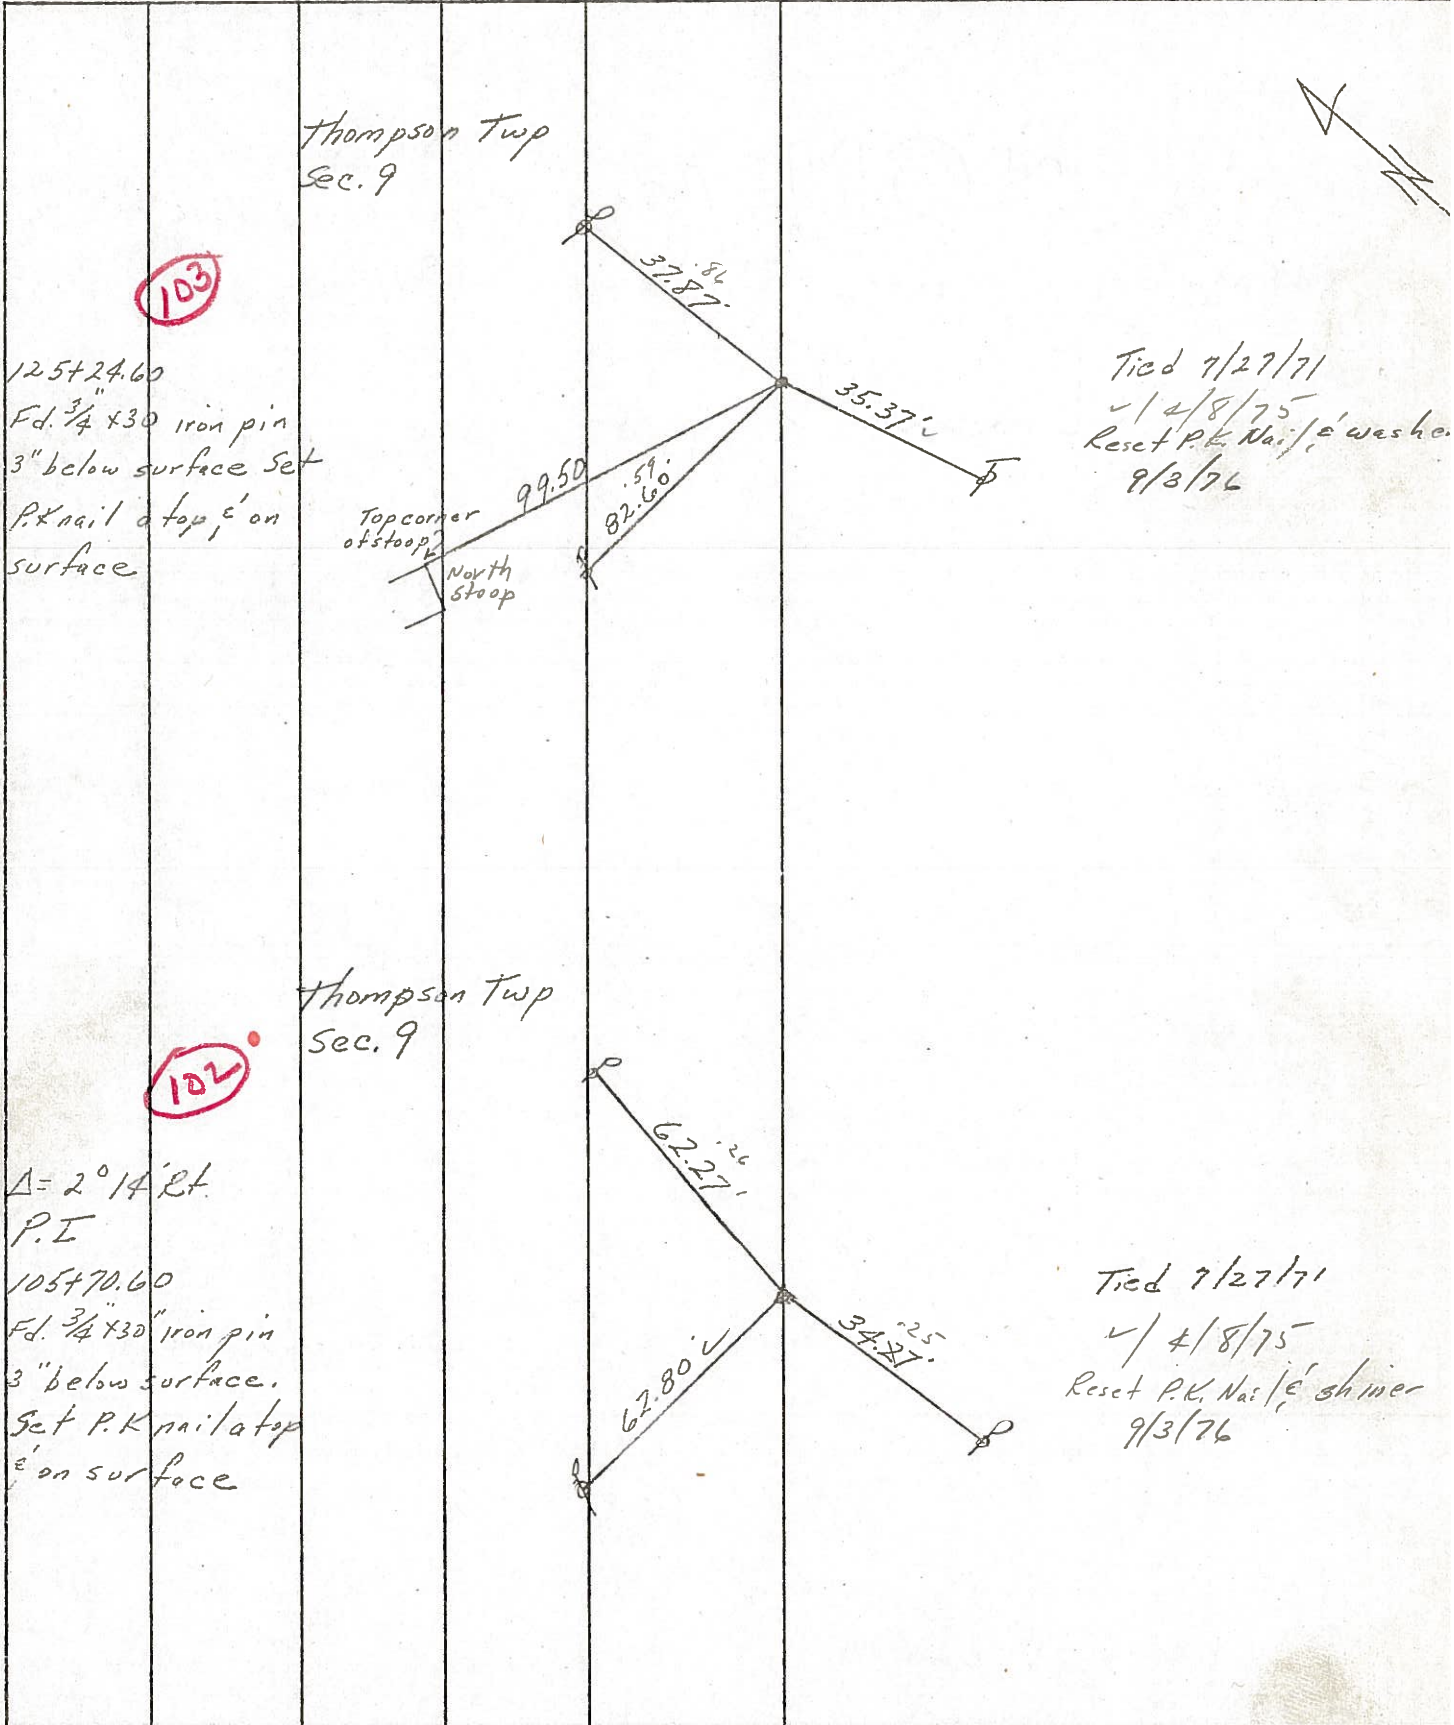 Thompson Twp
Sec. 9
103
125+24.60
Fd. 3/4" x30 iron pin
3" below surface Set
P.K nail atop, & on
surface
.86
37.87'
35.37' ✓
99.50
.59'
82.60'
Top corner
of stoop
North
stoop
Tied 7/27/71
✓ 4/8/75
Reset P.K. Nail & washer
9/3/76
Thompson Twp
Sec. 9
102
Δ= 2° 14' Rt.
P.I
105+70.60
Fd. 3/4" x30" iron pin
3" below surface.
Set P.K nail atop
& on surface
.26
62.27'
.25
34.27'
62.80' ✓
Tied 7/27/71
✓ 4/8/75
Reset P.K. Nail & shiner
9/3/76
N